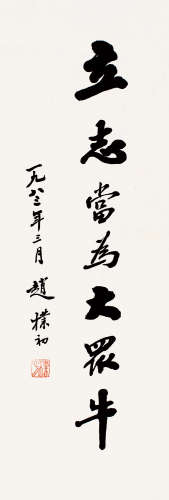 立志當為大眾牛
一九八三年三月 趙樸初